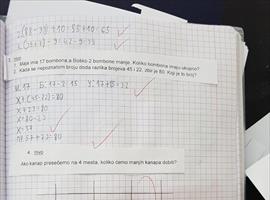 2(88-78)+10·55+10=65
2(35+7)-9=42-9=33
3. mm
1. Maja ima 17 bombona,a Boško 2 bombone manje. Koliko bombona imaju ukupno?
2. Kada se nepoznatom broju doda razlika brojeva 45 i 22, zbir je 80. Koji je to broj?
M:17 B:17-2=15 U:17+15=32
X+(45-22)=80
X+23=80
X=80-23
X=57
4. mm
Ako kanap presečemo na 4 mesta, koliko ćemo manjih kanapa dobiti?